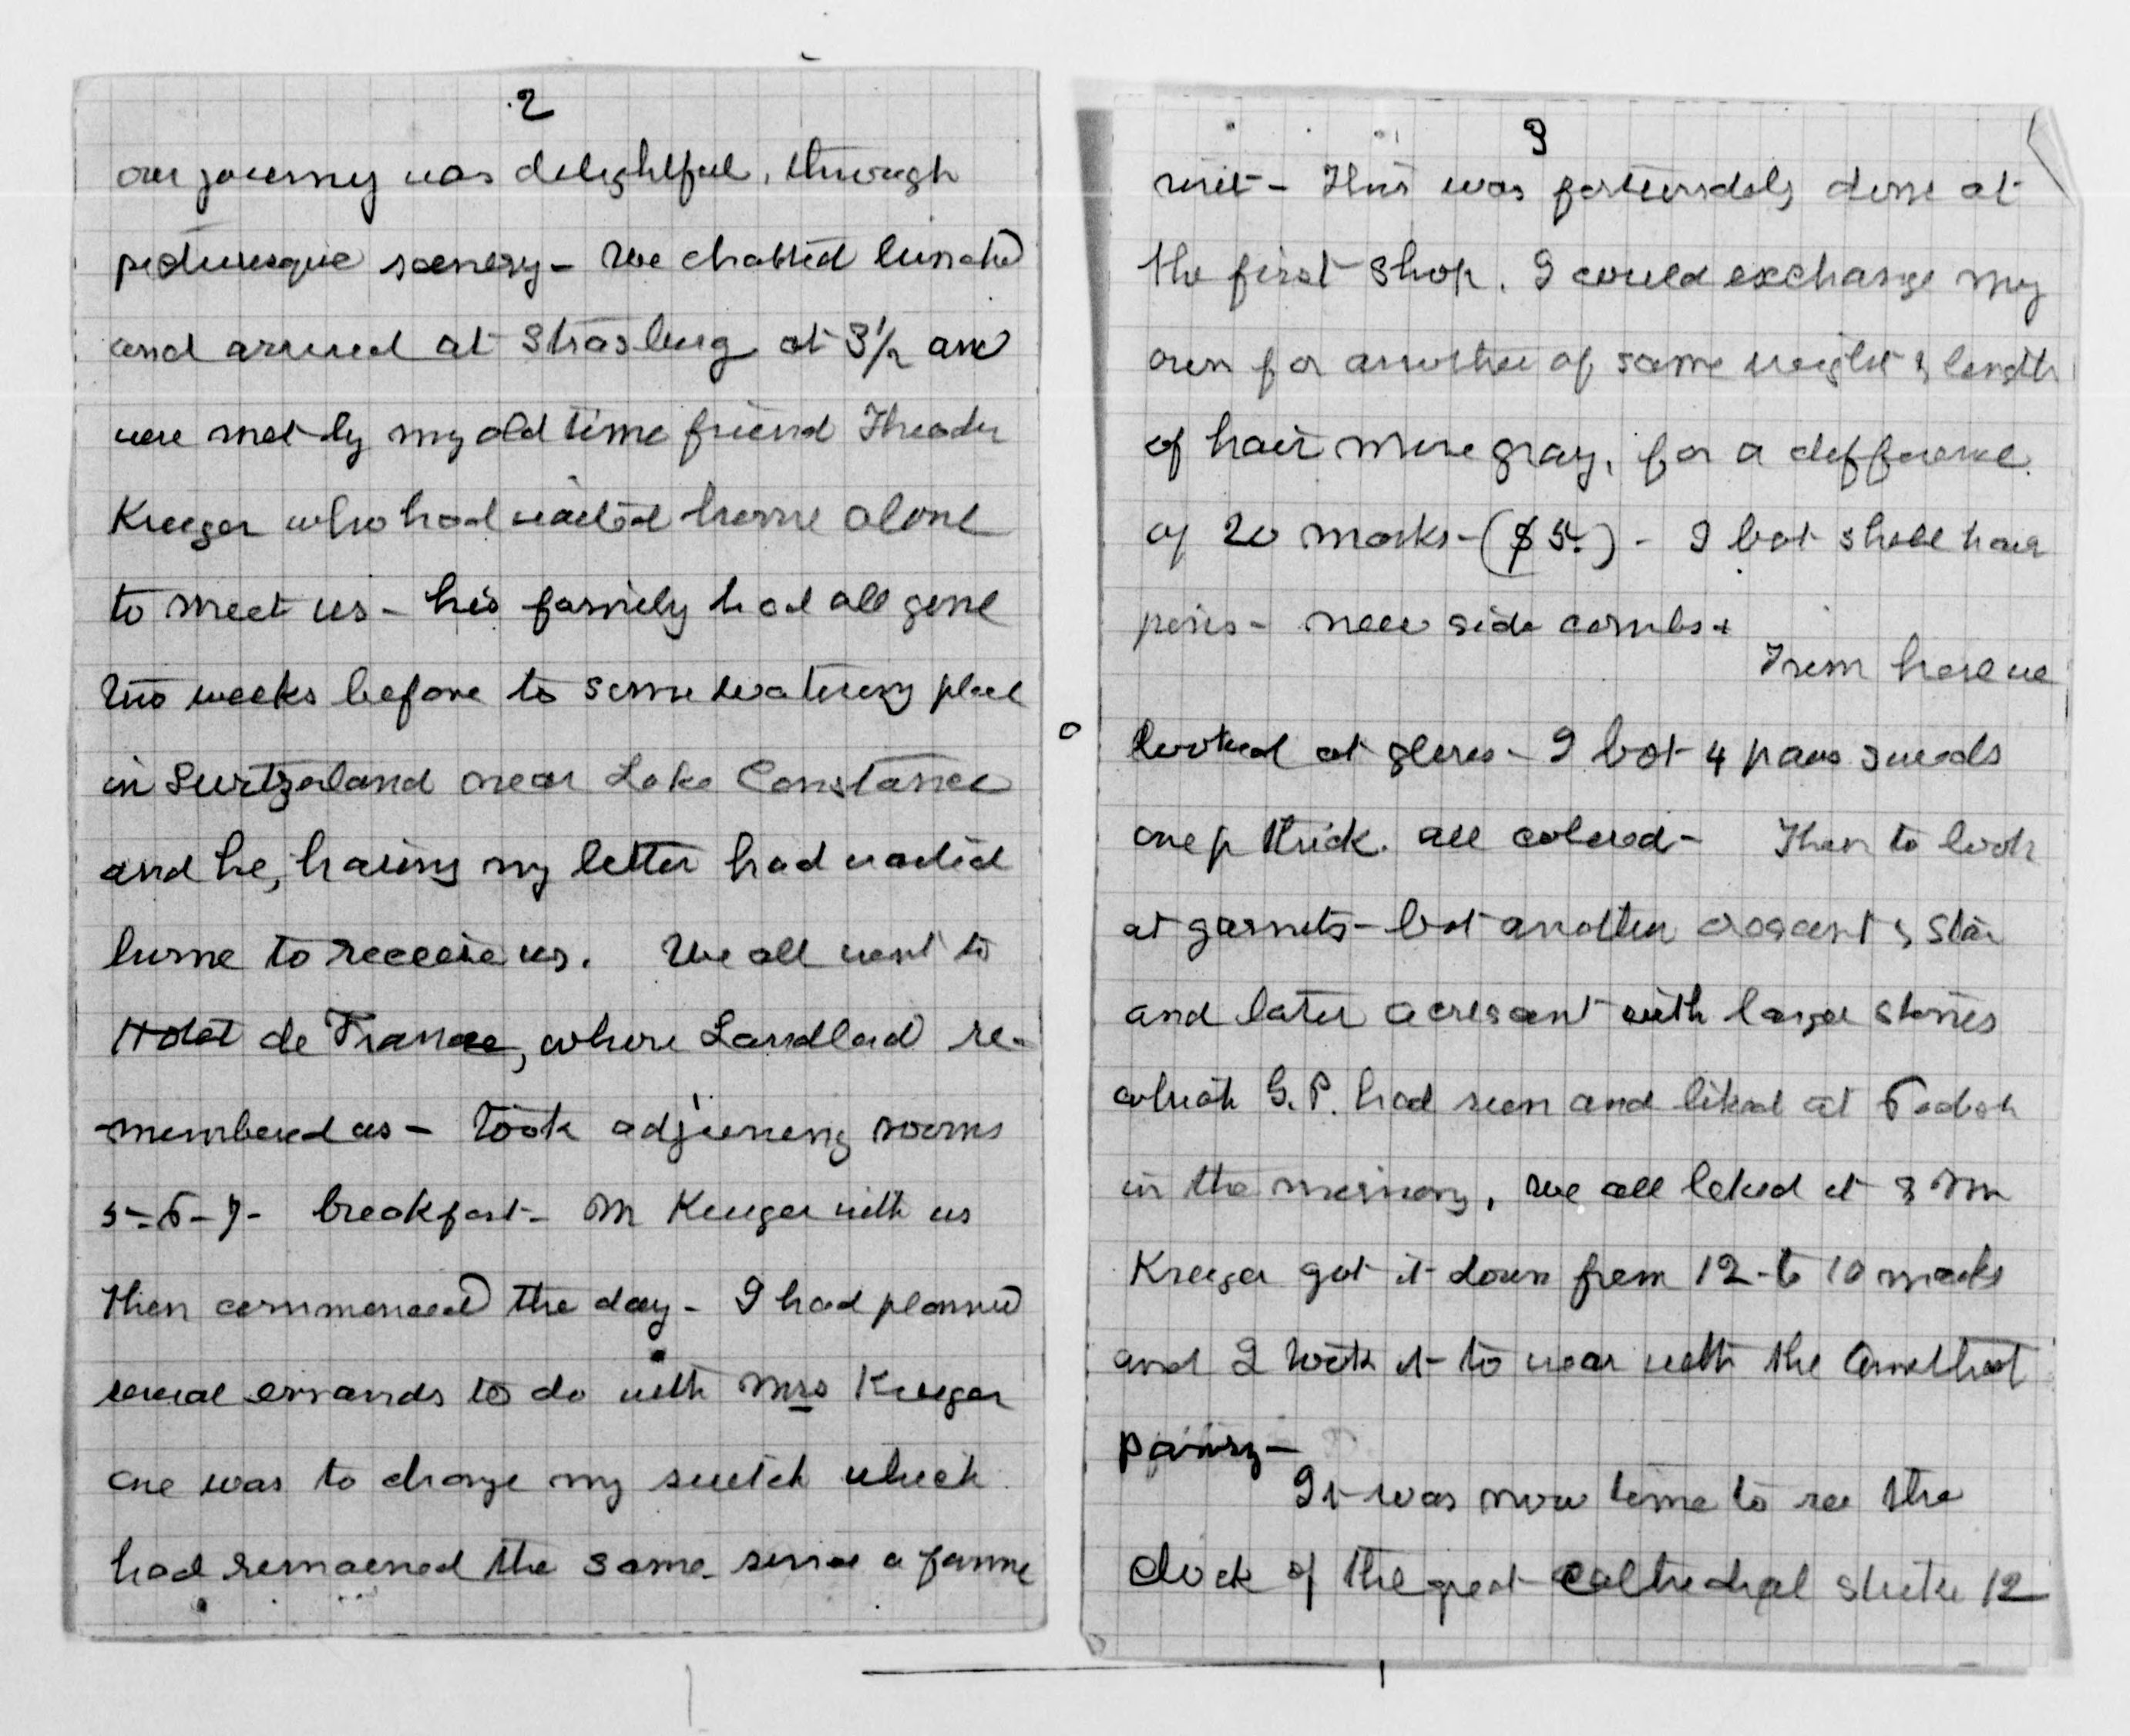 2
our journey was delightful, through
picturesque scenery - We chatted lunched
and arrived at Strasburg at 3½ and
were met by my old time friend Theodor
Kruger who had waited home alone
to meet us - his family had all gone
two weeks before to some watering place
in Switzerland near Lake Constance
and he, having my letter had waited
home to receive us. We all went to
Hotel de France, where Landlord re-
-membered us - took adjoining rooms
5-6-7- breakfast - M Kruger with us
then commenced the day - I had planned
several errands to do with Mrs Kruger
one was to change my switch which
had remained the same since a former
3
visit - This was fortunately done at
the first shop. I could exchange my
own for another of same weight & length
of hair more gray, for a difference
of 20 marks - ($5.) - I bot shell hair
pins - new side combs +
From here we
looked at gloves - I bot 4 pairs sueds
one p thick. all colored - Then to look
at garnets - bot another crescent & star
and later a crescent with large stones
which G.P. had seen and liked at
in the morning, we all liked it & Mr
Kruger got it down from 12 to 10 marks
and I took it to wear with the Amethist
pansy -
It was now time to see the
clock of the great cathedral strike 12